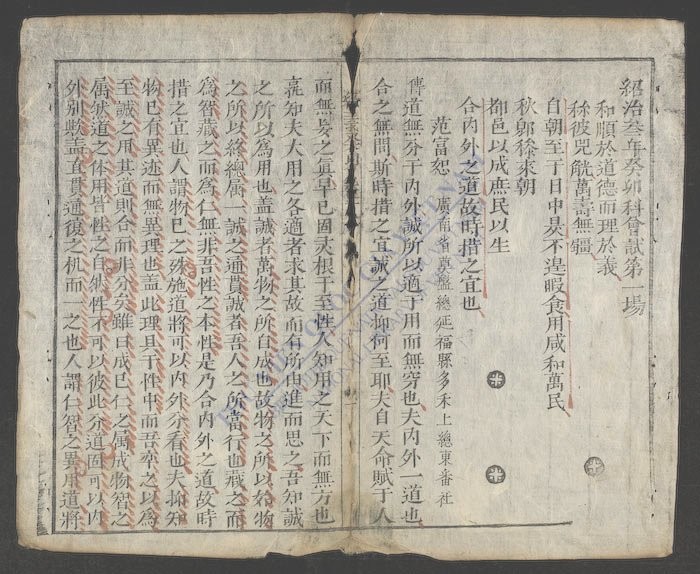 紹治叁年癸卯科會試第一場
和順於道德而理於義
稱彼兕觥萬壽無疆
自朝至于日中昃不遑暇食用咸和萬民
秋郭徐來朝
抑邑以成庶民以生
合內外之道故時措之宜也
范富恕 廣南省奠盤總延福縣多禾上總東番社
傳道無分于內外誠所以適于用而無窮也夫內外一道也
合之無間斯時措之宜誠之道抑何至耶夫自天命賦于人
而無妄之眞早已固大根于至性人知用之天下而無方也
孰知夫大用之各適者求其故而有所由進而思之吾知誠
之所以為用也盖誠者萬物之所自成也故物之所以始物
之所以終總屬一誠之通貫誠者吾人之所當行也藏之而
為智藏之而為仁無非吾性之本性是乃合內外之道故時
措之宜也人謂物已之殊施道將可以內外分看也夫抑知
物已有異迹而無異理也盖此理具于性中而吾率之以為
至誠之用其道則合而非分矣雖曰成已仁之屬成物智之
屬然道之体用皆性之自然性不可以彼此分道固可以內
外別此盖直貫通復之机而一之也人謂仁智之異用道將